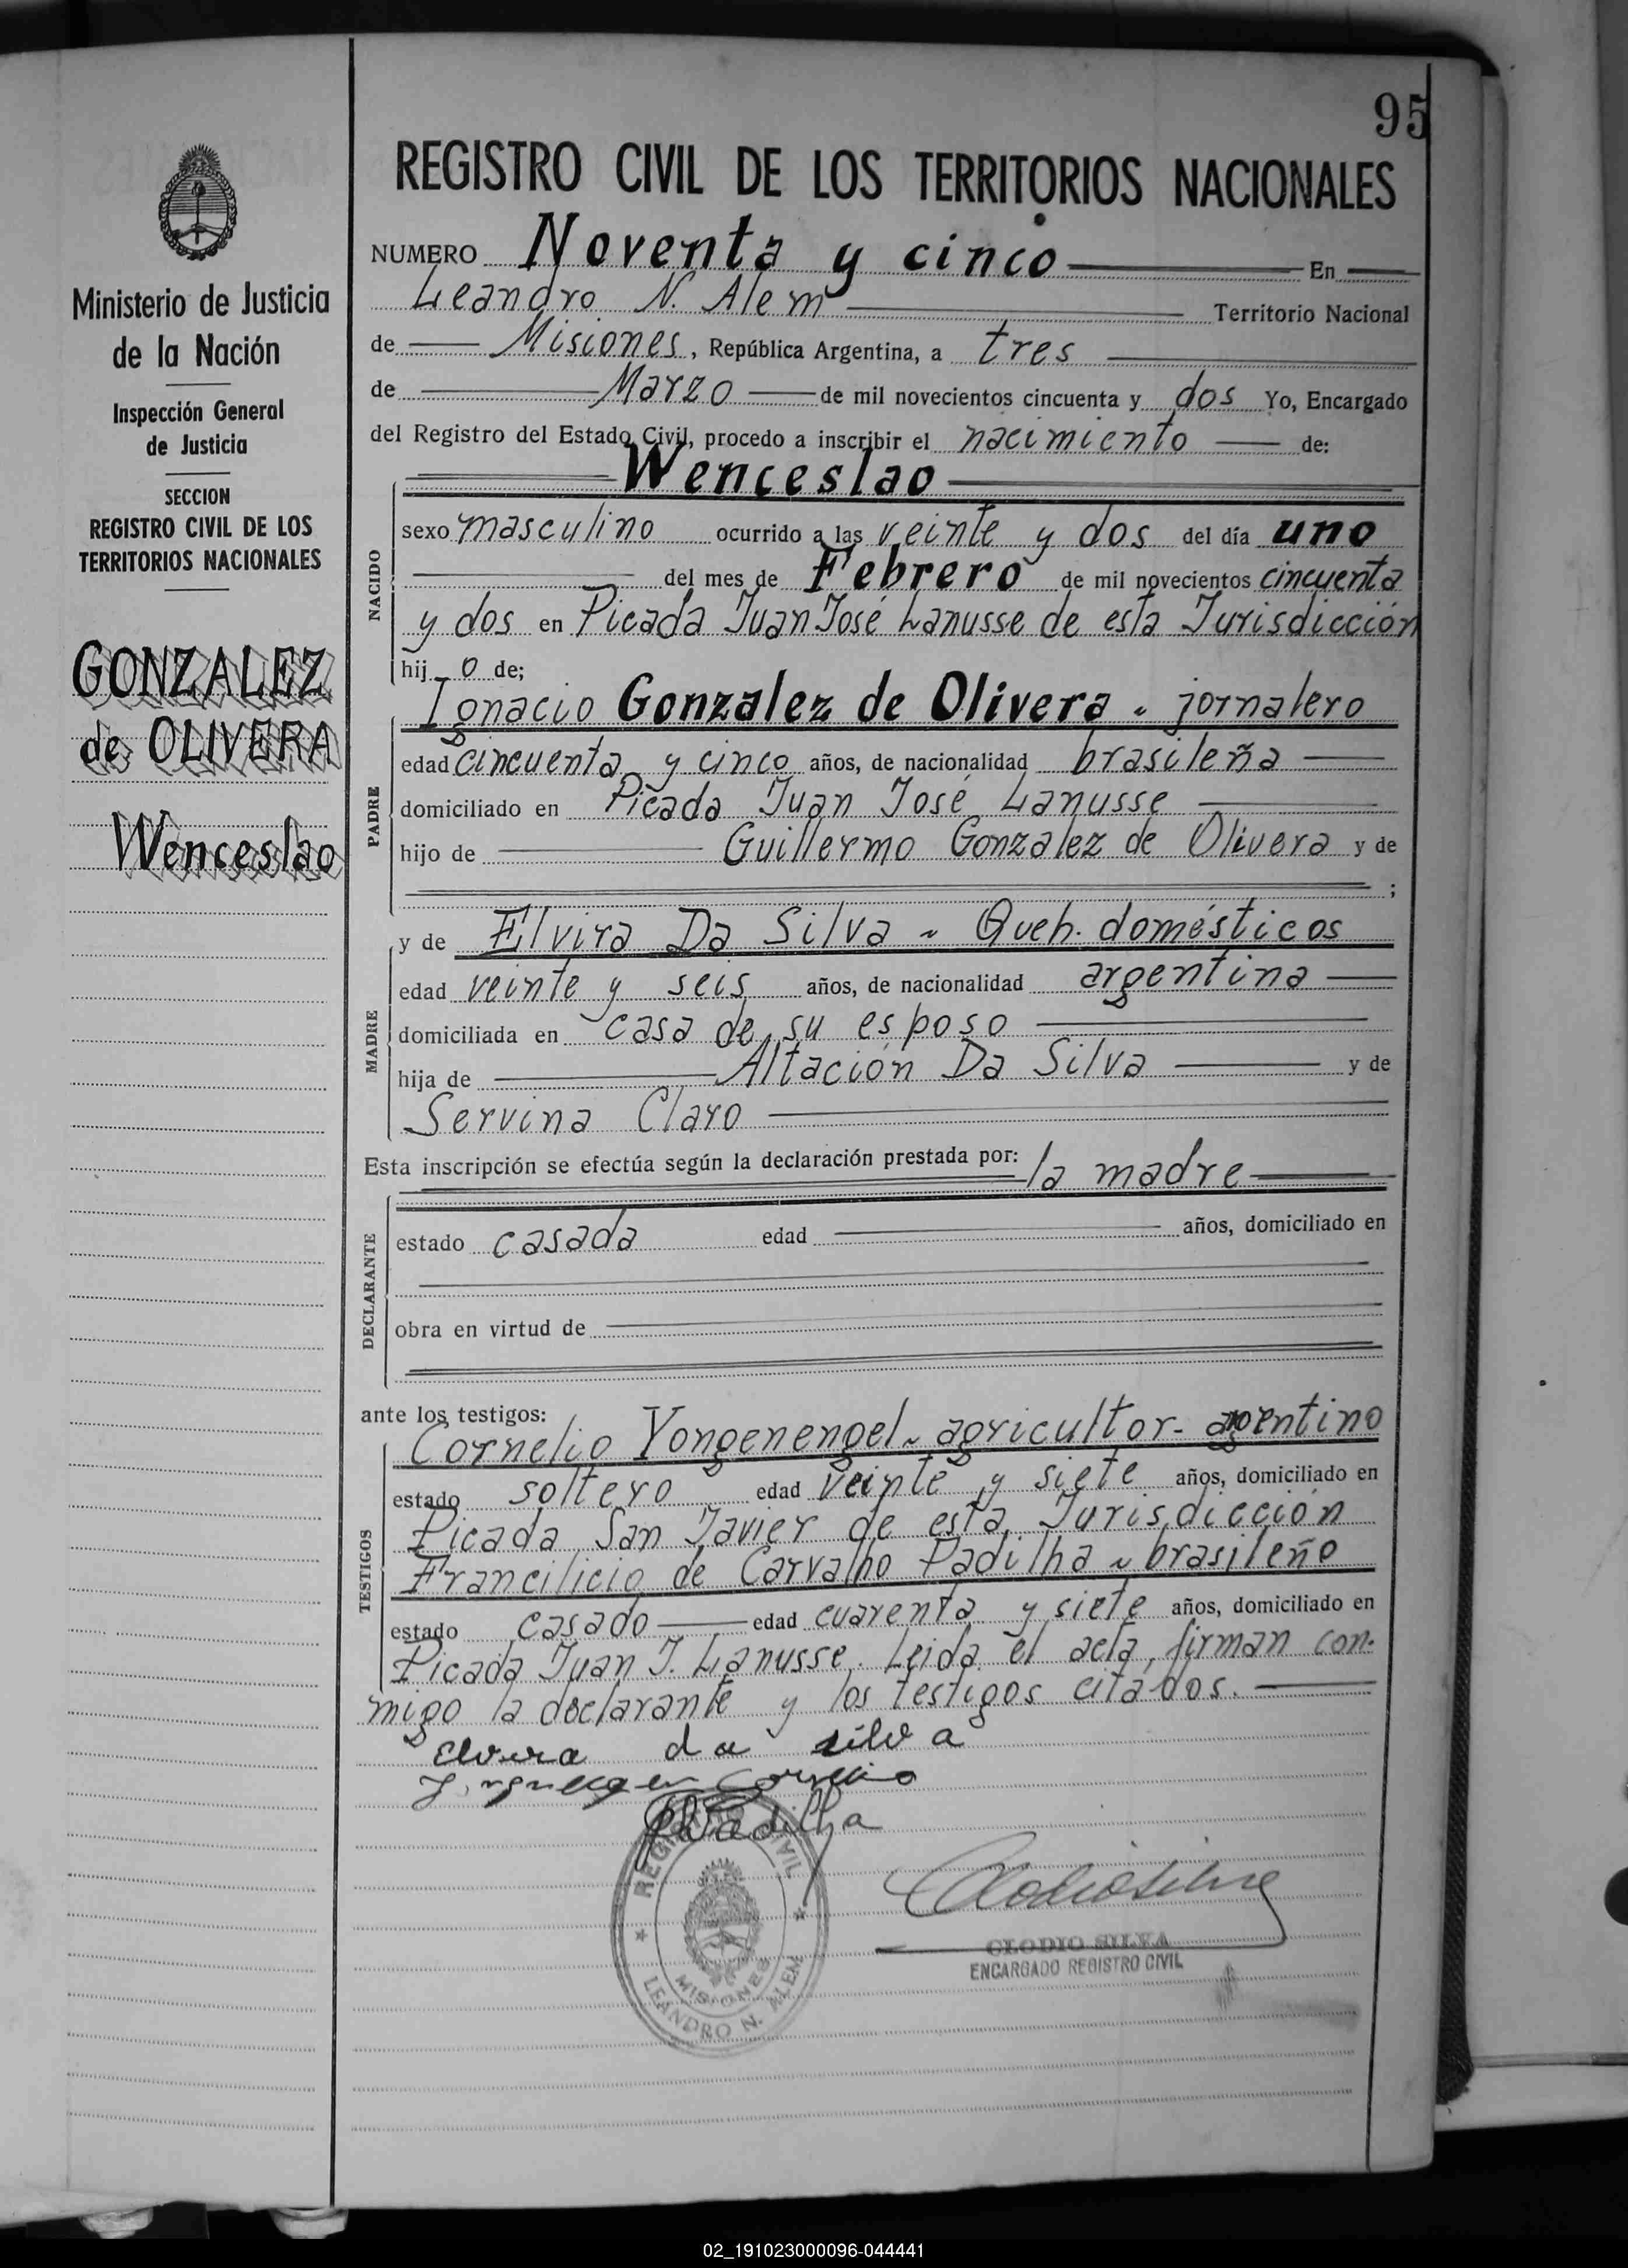 95
REGISTRO CIVIL DE LOS TERRITORIOS NACIONALES
Ministerio de Justicia
de la Nación
Inspección General
de Justicia
SECCION
REGISTRO CIVIL DE LOS
TERRITORIOS NACIONALES
GONZALEZ
de OLIVERA
Wenceslao
NUMERO Noventa y cinco En
Leandro N. Alem Territorio Nacional
de Misiones, República Argentina, a tres
de Marzo de mil novecientos cincuenta y dos Yo, Encargado
del Registro del Estado Civil, procedo a inscribir el nacimiento de:
Wenceslao
NACIDO
sexo masculino ocurrido a las veinte y dos del día uno
del mes de Febrero de mil novecientos cincuenta
y dos en Picada Juan José Lanusse de esta Jurisdicción
hij o de;
Ignacio Gonzalez de Olivera - jornalero
PADRE
edad cincuenta y cinco años, de nacionalidad brasileña
domiciliado en Picada Juan José Lanusse
hijo de Guillermo Gonzalez de Olivera y de
;
y de Elvira Da Silva - Queh. domésticos
MADRE
edad veinte y seis años, de nacionalidad argentina
domiciliada en casa de su esposo
hija de Altación Da Silva y de
Servina Claro
Esta inscripción se efectúa según la declaración prestada por: la madre
DECLARANTE
estado casada edad años, domiciliado en
obra en virtud de
ante los testigos:
Cornelio Yongenengel - agricultor - argentino
TESTIGOS
estado soltero edad veinte y siete años, domiciliado en
Picada San Javier de esta Jurisdicción
Francilicio de Carvalho Padilha - brasileño
estado casado edad cuarenta y siete años, domiciliado en
Picada Juan J. Lanusse. Leida el acta, firman con-
migo la declarante y los testigos citados.
Elvira da silva
Padilha
REGISTRO CIVIL
MISIONES
LEANDRO N. ALEM
CLODIO SILVA
ENCARGADO REGISTRO CIVIL
02_191023000096-044441